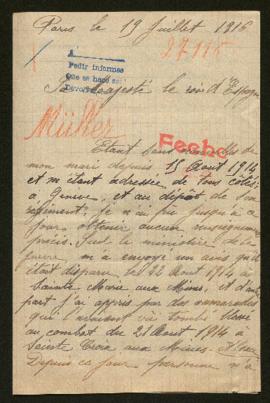 Paris le 19 Juillet 1916
27115
A
Pedir informes
que se hace sa
Sa Majesté le roi d'Espagne
Müller
Fecho
Etant sans nouvelles de
mon mari depuis 15 Aout 1914
et m'étant adressée de tous cotés
à Genève, et au dépot de son
régiment, je n'ai pu jusqu'à ce
jour, obtenir aucun renseignement
précis. Seul le ministère de la
Guerre m'a envoyé un avis qu'il
était disparu le 22 Aout 1914 à
Sainte Marie aux Mines, et d'autre
part j'ai appris par des camarades
qui l'avaient vu tombé blessé
au combat du 21 Aout 1914 à
Sainte Croix aux Mines
Depuis ce jour personne n'a